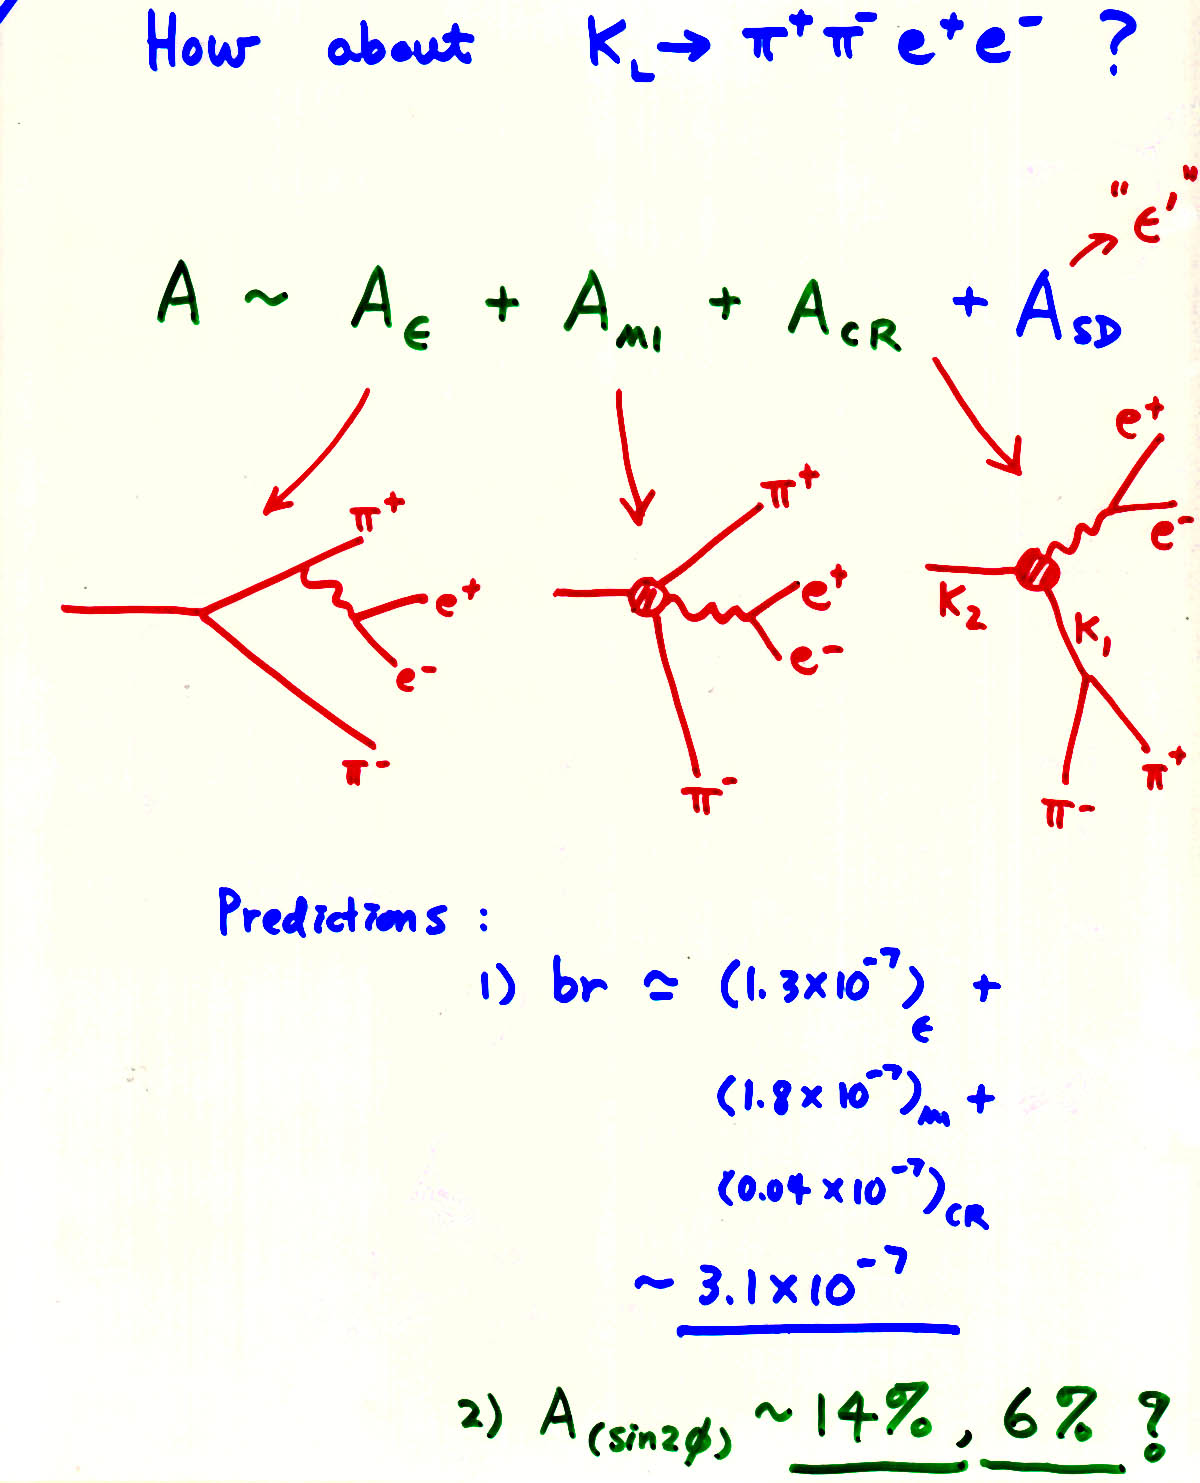 How about K_L → π⁺π⁻e⁺e⁻ ?
"ϵ'"
A ~ A_ϵ + A_M1 + A_CR + A_SD
π⁺ e⁺ e⁻ π⁻
π⁺ e⁺ e⁻ π⁻
e⁺ e⁻ K₂ K₁ π⁻ π⁺
Predictions :
1) br ≃ (1.3×10⁻⁷)_ϵ +
(1.8×10⁻⁷)_M1 +
(0.04×10⁻⁷)_CR
~ 3.1×10⁻⁷
2) A_(sin2ϕ) ~ 14%, 6% ?